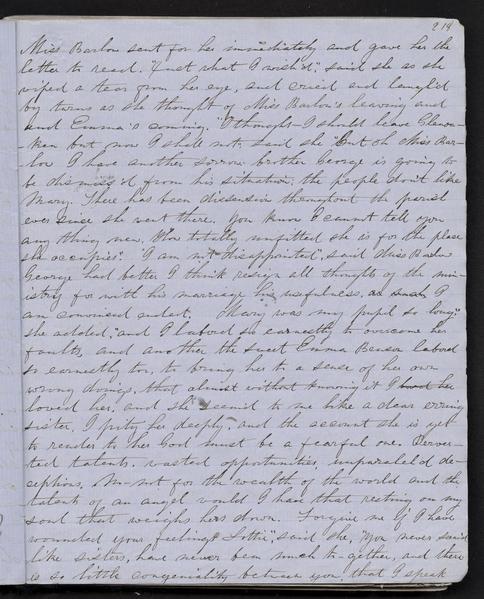 219
Miss Barlow sent for her immediately and gave her the
letter to read. "Just what I wish'd", said she as she
wiped a tear from her eye, and cried and laugh'd
by turns as she thought of Miss Barlow's leaving and
and Emma's coming. "I thought I should leave
but now I shall not, said she "But oh Miss Bar-
low I have another sorrow brother George is going to
be dismiss'd from his situation, the people don't like
Mary. There has been dissension throughout the parish
ever since she went there. You know I cannot tell you
any thing new. How totally unfitted she is for the place
she occupies". "I am not disappointed", said Miss Barlow
George had better I think resign all thoughts of the min-
istry for with his marriage his usefulness, as such I
am convinced ended. Mary was my pupil so long",
she added, "and I labored so earnestly to overcome her
faults, and another the sweet Emma Benson labored
so earnestly too, to bring her to a sense of her own
wrong doings, that almost without knowing it I had her
loved her, and she seemed to me like a dear erring
sister, I pity her deeply and the account she is yet
to render to her God must be a fearful one. Perver-
ted talents, wasted opportunities, unparalel'd de-
ceptions, not for the wealth of the world and the
talents of an angel would I have that resting on my
soul that weighs hers down. Forgive me if I have
wounded your feelings Lottie, said she, "You never seem'd
like sisters, have never been much to-gether, and there
is so little congeniality between you, that I speak